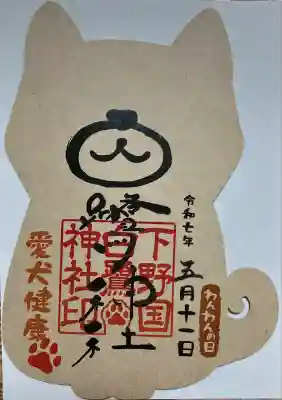 令和七年
五月十一日
わんわんの日
下野国
白鷺
神社印
愛犬健康